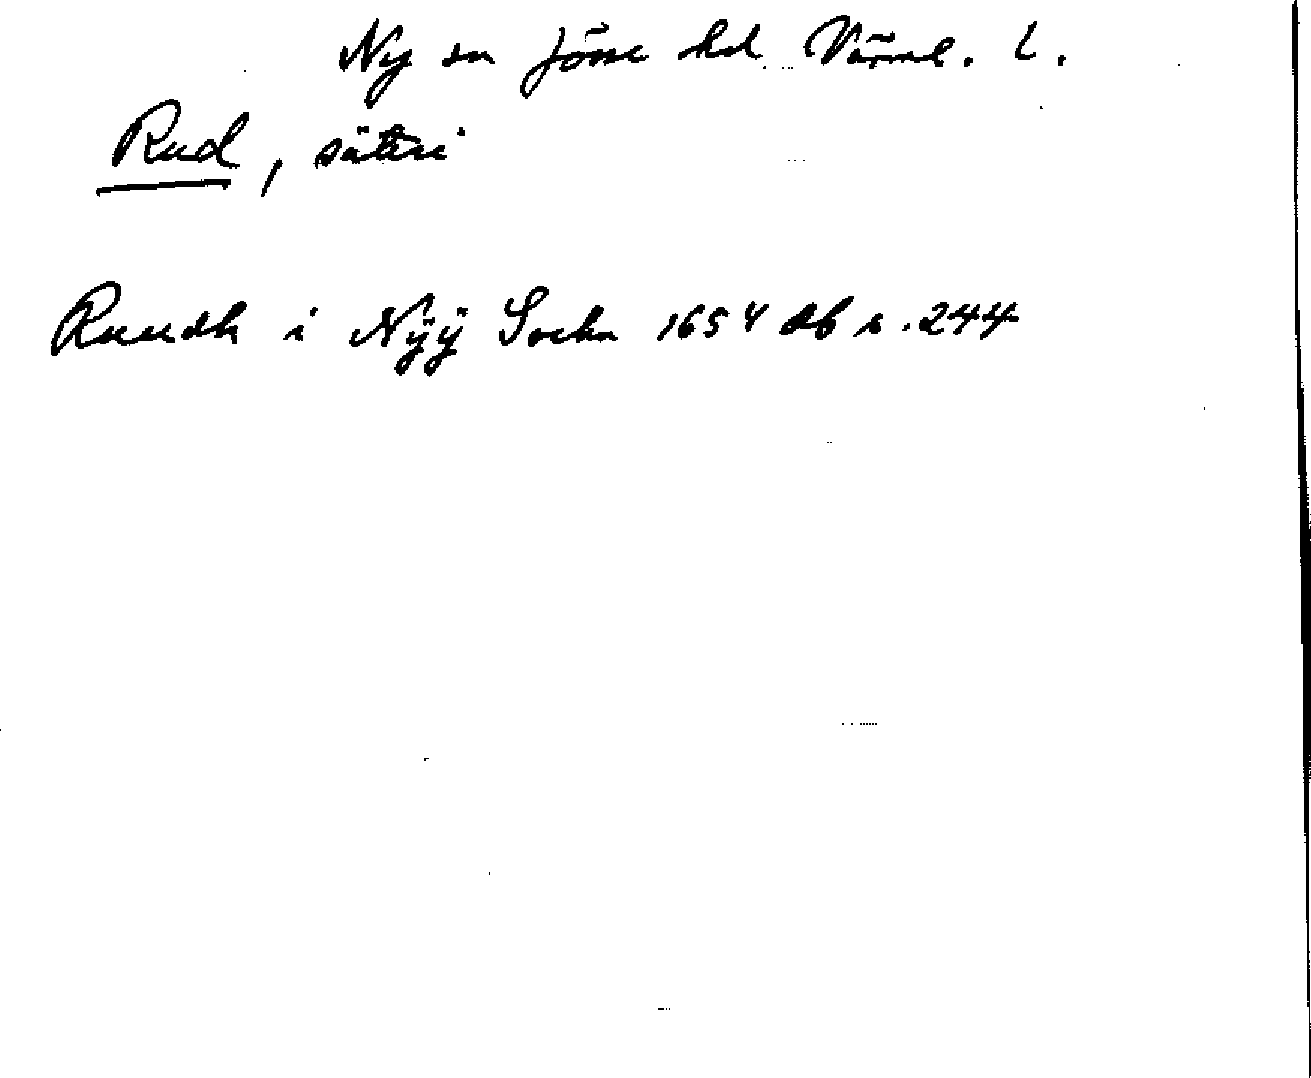 Ny sn Jösse hd Värml. l.
Rud, säteri
Ruudh i Nÿÿ Sochn 1654 db s. 244